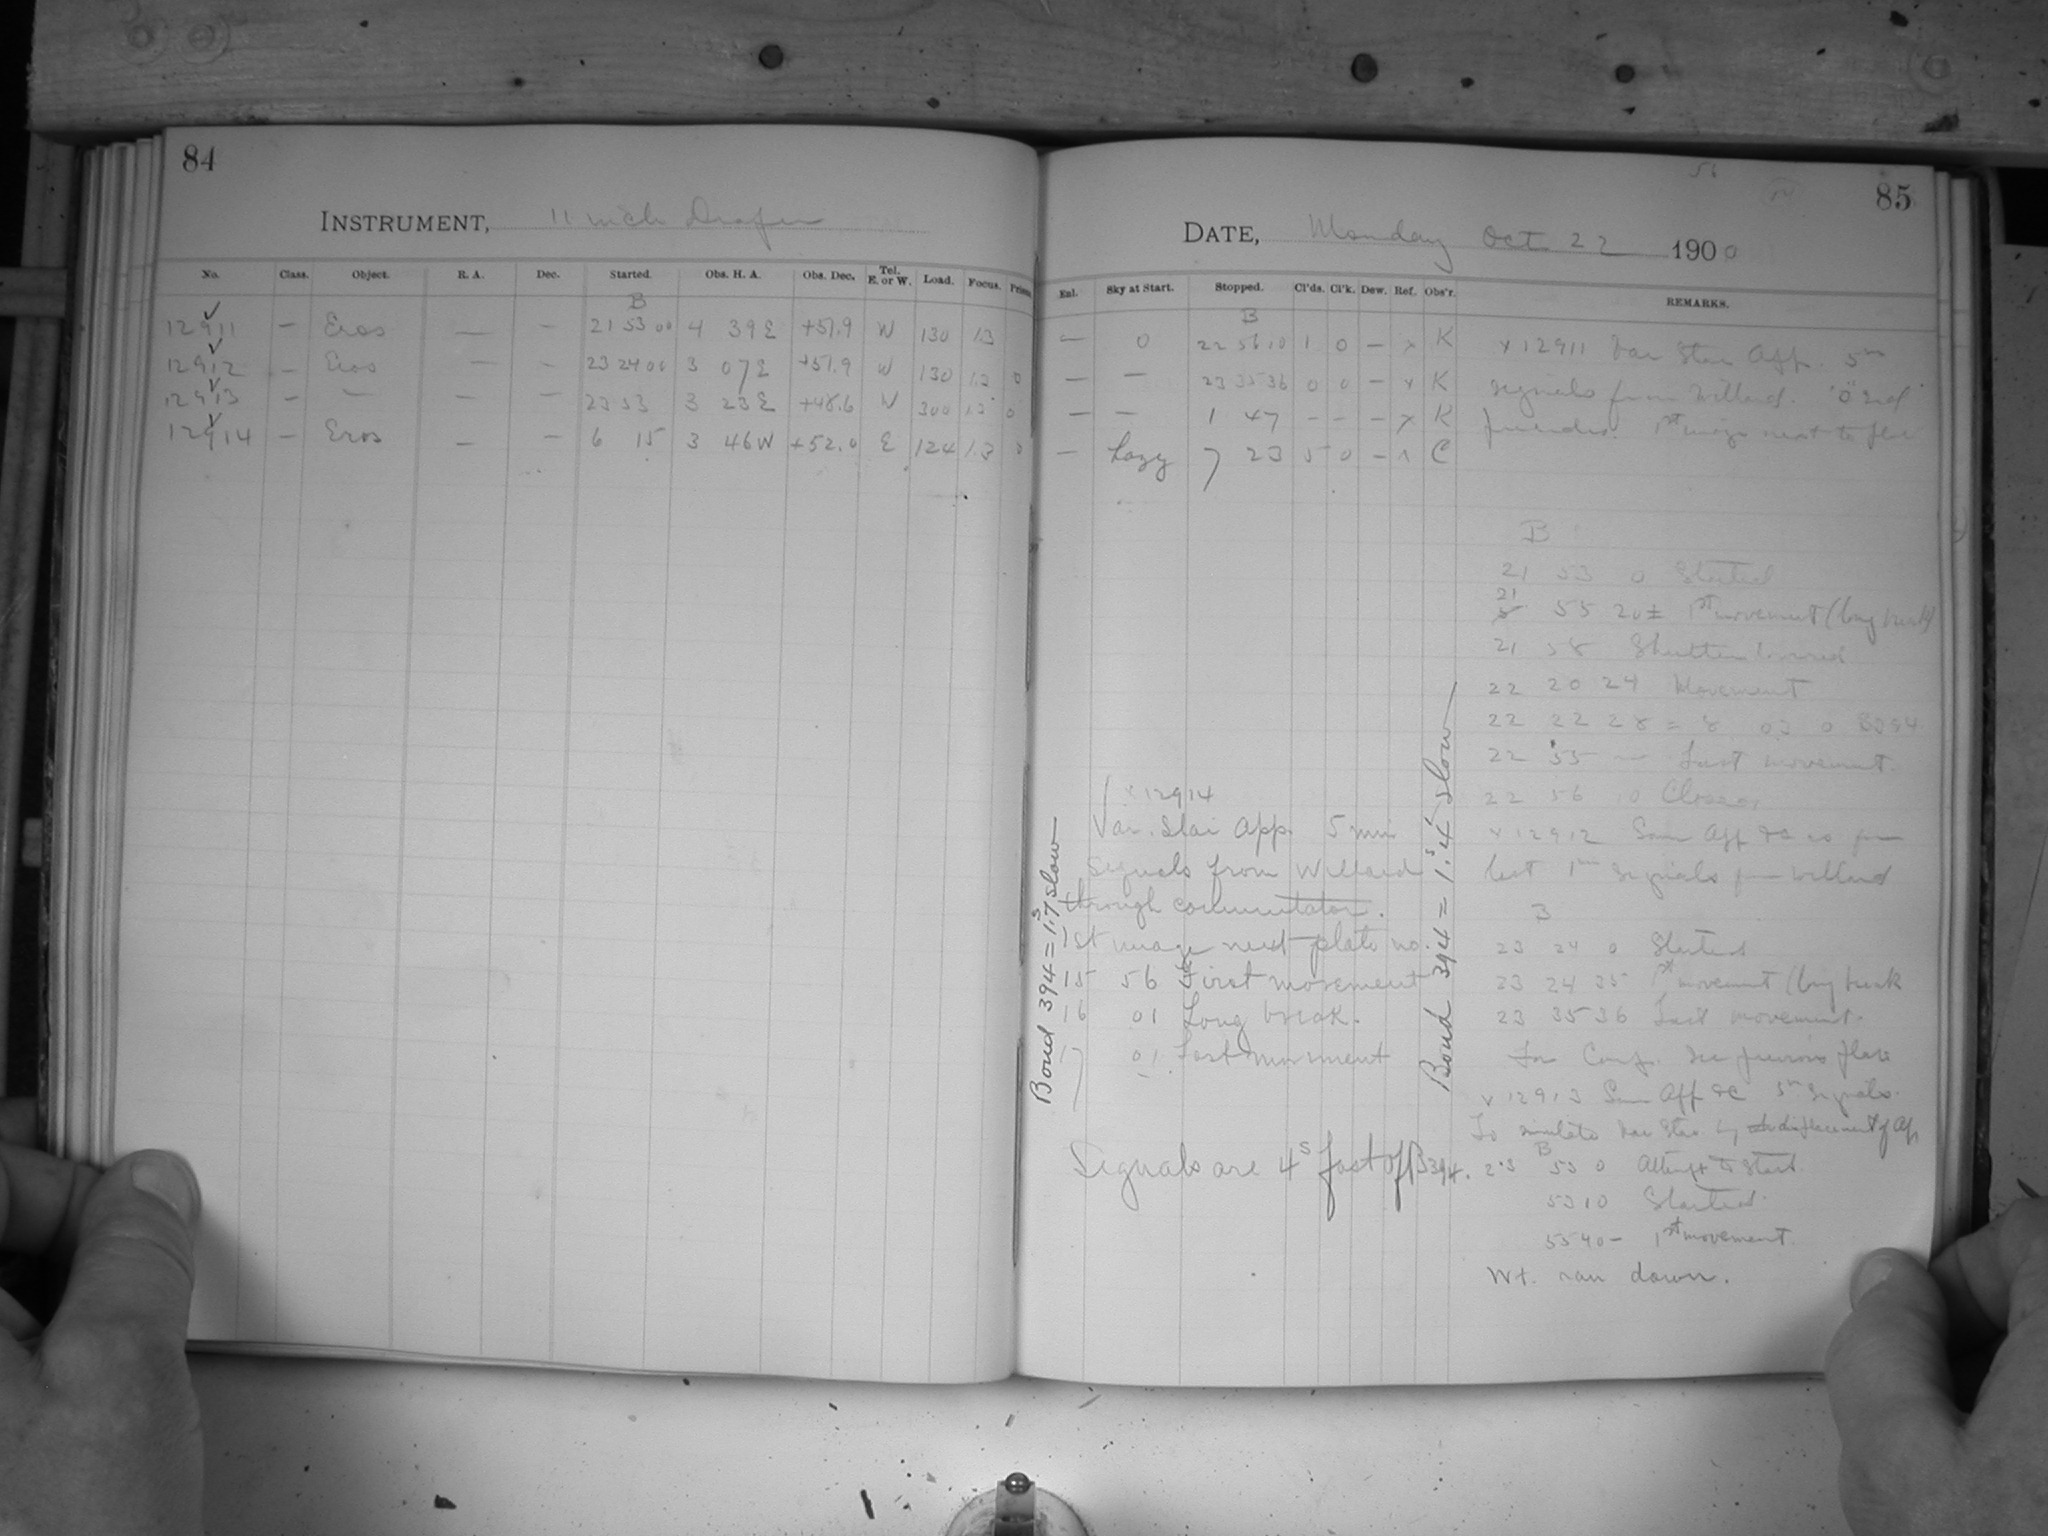 84
INSTRUMENT, 11 inch Draper
No. Class. Object. R. A. Dec. Started. Obs. H. A. Obs. Dec. Tel. E. or W. Load. Focus.
B
12911 — Eros — — 21 53 00 4 39 E +51.9 W 130 13
12912 — Eros — — 23 24 00 3 07 E +51.9 W 130 13 0
12913 — — — — 23 53 3 23 E +48.6 W 300 13 0
12914 — Eros — — 6 15 3 46 W +52.0 E 124 13 0
56
85
DATE, Monday Oct 22 1900
Enl. Sky at Start. Stopped. Cl'ds. Cl'k. Dew. Ref. Obs'r. REMARKS.
B
— 0 22 56 10 1 0 — x K
— — 23 35 36 0 0 — x K
— — 1 47 — — — x K
— hazy 7 23 5 0 — x C
x 12911 Var Star App. 5m
signals from Willard.
1st image next to
B
21 53 0 Started
21 55 20± 1st movement (long break)
21 58 Shutter
22 20 24 Movement
22 22 28 = 8 03 0 B394
22 55 — Last movement.
22 56 10 Closed
x 12912 Same App &c as
but 1m signals from Willard
B
23 24 0 Started
23 24 35 1st movement (long break
23 35 36 Last movement.
For see previous plate
x 12913 Same App &c 5m signals.
To simulate Var Star by displacement of App
B
23 53 0 Attempt to start
53 10 Started
55 40 — 1st movement
Wt. ran down.
x 12914
Var. Star App. 5 min
signals from Willard
through commutator.
1st image next plate no.
15 56 First movement
16 01 Long break.
17 01 Last movement
Signals are 4s fast of B394.
Bond 394 = 1s.7 slow
Bond 394 = 1s.4 slow